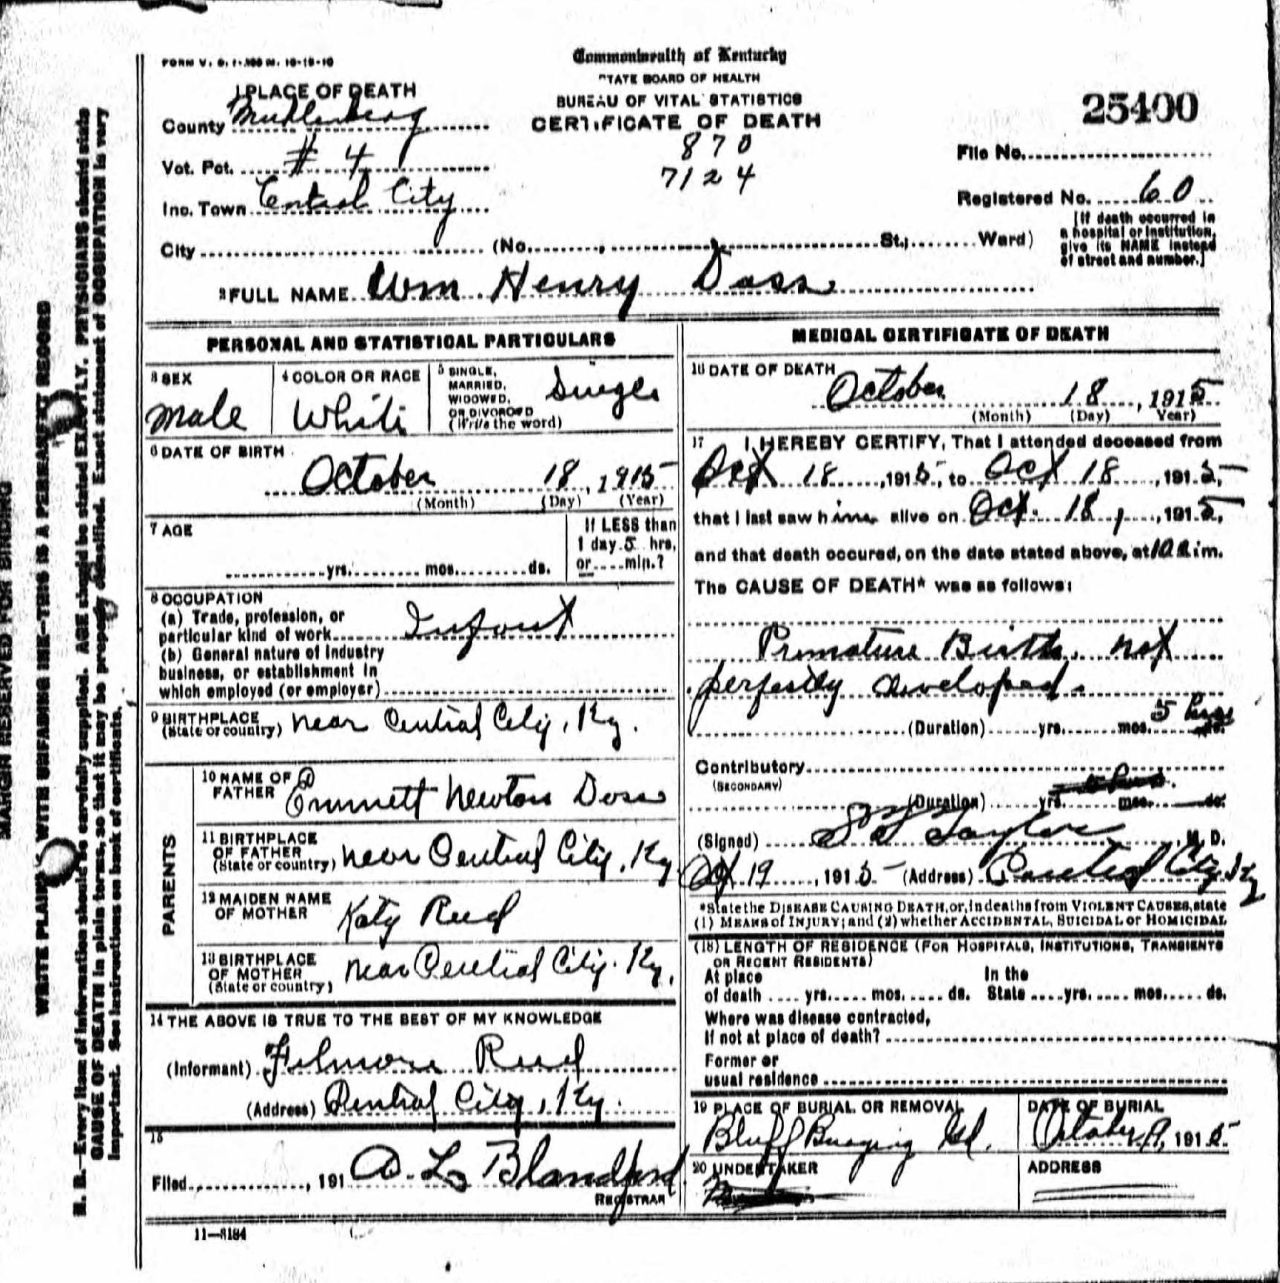 FORM V. S. 1-300 M. 10-18-10
Commonwealth of Kentucky
STATE BOARD OF HEALTH
BUREAU OF VITAL STATISTICS
CERTIFICATE OF DEATH
25400
870
7124
1 PLACE OF DEATH
County Muhlenberg
Vot. Pct. # 4
Inc. Town Central City
City (No. St.; Ward)
File No.
Registered No. 60
[If death occurred in
a hospital or institution,
give its NAME instead
of street and number.]
2 FULL NAME Wm Henry Doss
PERSONAL AND STATISTICAL PARTICULARS
3 SEX
Male
4 COLOR OR RACE
White
5 SINGLE,
MARRIED,
WIDOWED,
OR DIVORCED
(Write the word)
Single
6 DATE OF BIRTH
October 18, 1915
(Month) (Day) (Year)
7 AGE
yrs. mos. ds.
If LESS than
1 day 5 hrs,
or min.?
8 OCCUPATION
(a) Trade, profession, or
particular kind of work Infant
(b) General nature of industry
business, or establishment in
which employed (or employer)
9 BIRTHPLACE
(State or country) near Central City, Ky.
PARENTS
10 NAME OF
FATHER Emmett Newton Doss
11 BIRTHPLACE
OF FATHER
(State or country) near Central City, Ky
12 MAIDEN NAME
OF MOTHER Katy Reed
13 BIRTHPLACE
OF MOTHER
(State or country) near Central City. Ky.
14 THE ABOVE IS TRUE TO THE BEST OF MY KNOWLEDGE
(Informant) Filmore Reed
(Address) Central City, Ky.
15
Filed , 191 A. L. Blandford
REGISTRAR
11—3184
MEDICAL CERTIFICATE OF DEATH
16 DATE OF DEATH
October 18, 1915
(Month) (Day) Year)
17 I HEREBY CERTIFY, That I attended deceased from
Oct 18, 1915, to Oct 18, 1915,
that I last saw him alive on Oct. 18, 1915,
and that death occured, on the date stated above, at 10 a m.
The CAUSE OF DEATH* was as follows:
Premature Birth. not
perfectly developed.
(Duration) yrs. mos. 5 hrs
Contributory
(SECONDARY)
(Duration) yrs. mos. ds.
(Signed) Taylor M. D.
Oct 19, 1915 (Address) Central City, Ky
*State the DISEASE CAUSING DEATH, or, in deaths from VIOLENT CAUSES, state
(1) MEANS of INJURY; and (2) whether ACCIDENTAL, SUICIDAL or HOMICIDAL
(18) LENGTH OF RESIDENCE (FOR HOSPITALS, INSTITUTIONS, TRANSIENTS
OR RECENT RESIDENTS)
At place In the
of death yrs. mos. ds. State yrs. mos. ds.
Where was disease contracted,
If not at place of death?
Former or
usual residence
19 PLACE OF BURIAL OR REMOVAL
DATE OF BURIAL
October 19, 1915
20 UNDERTAKER
ADDRESS
MARGIN RESERVED FOR BINDING
WRITE PLAINLY WITH UNFADING INK—THIS IS A PERMANENT RECORD
N. B.—Every item of information should be carefully supplied. AGE should be stated EXACTLY. PHYSICIANS should state
CAUSE OF DEATH in plain terms, so that it may be properly classified. Exact statement of OCCUPATION is very
important. See instructions on back of certificate.